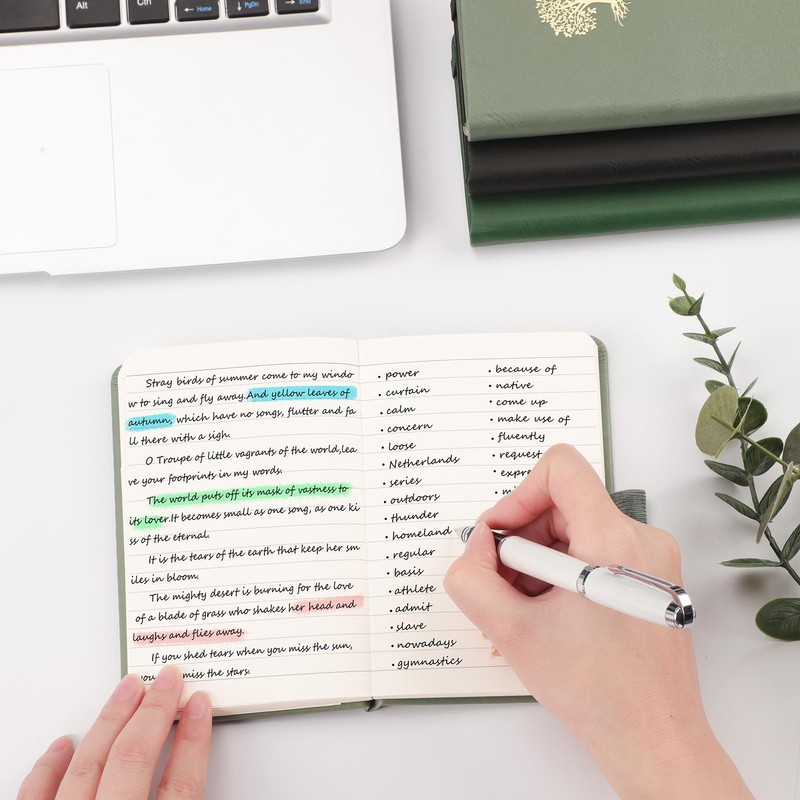 Alt
Ctrl
Home
PgDn
End
Stray birds of summer come to my windo
w to sing and fly away.And yellow leaves of
autumn, which have no songs, flutter and fa
ll there with a sigh.
O Troupe of little vagrants of the world,lea
ve your footprints in my words.
The world puts off its mask of vastness to
its lover.It becomes small as one song, as one ki
ss of the eternal.
It is the tears of the earth that keep her sm
iles in bloom.
The mighty desert is burning for the love
of a blade of grass who shakes her head and
laughs and flies away.
If you shed tears when you miss the sun,
you miss the stars.
• power
• curtain
• calm
• concern
• loose
• Netherlands
• series
• outdoors
• thunder
• homeland
• regular
• basis
• athlete
• admit
• slave
• nowadays
• gymnastics
• because of
• native
• come up
• make use of
• fluently
• request